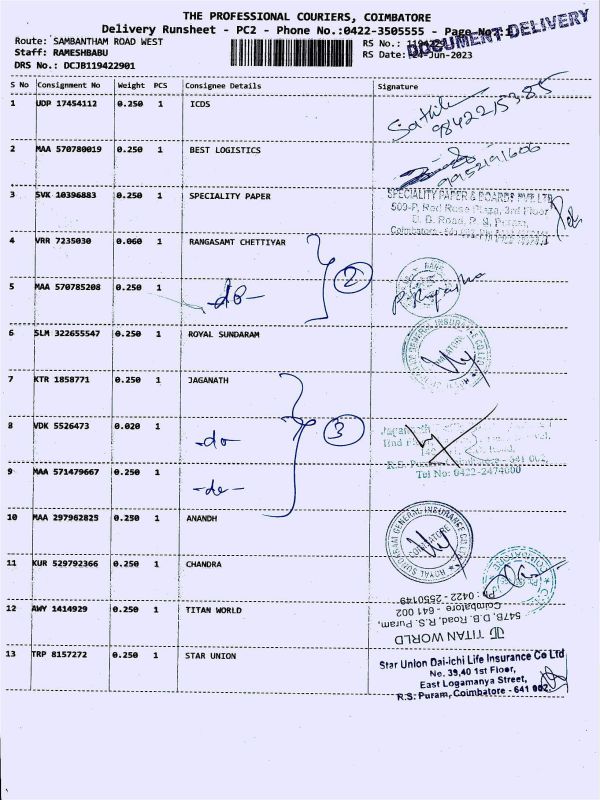 THE PROFESSIONAL COURIERS, COIMBATORE
Delivery Runsheet - PC2 - Phone No.:0422-3505555 - Page No?:1
DOCUMENT DELIVERY
Route: SAMBANTHAM ROAD WEST
RS No.:
Staff: RAMESHBABU
RS Date: 24-Jun-2023
DRS No.: DCJB119422901
S No Consignment No Weight PCS Consignee Details Signature
1 UDP 17454112 0.250 1 ICDS
2 MAA 570780019 0.250 1 BEST LOGISTICS
9952191606
3 SVK 10396883 0.250 1 SPECIALITY PAPER
SPECIALITY PAPER & BOARDS PVT LTD
509-P, Red Rose Plaza, 3rd Floor
D. B. Road, R. S. Puram,
4 VRR 7235030 0.060 1 RANGASAMT CHETTIYAR
2
5 MAA 570785208 0.250 1 -do-
6 SLM 322655547 0.250 1 ROYAL SUNDARAM
7 KTR 1858771 0.250 1 JAGANATH
8 VDK 5526473 0.020 1 -do-
3
9 MAA 571479667 0.250 1 -do-
R.S. Puram, Coimbatore - 641 002.
Tel No: 0422-2474000
10 MAA 297962825 0.250 1 ANANDH
ROYAL SUNDARAM GENERAL INSURANCE CO LTD
COIMBATORE
11 KUR 529792366 0.250 1 CHANDRA
12 AWY 1414929 0.250 1 TITAN WORLD
TITAN WORLD
547B, D.B. Road, R.S. Puram,
Coimbatore - 641 002
Ph: 0422 - 2550149
13 TRP 8157272 0.250 1 STAR UNION
Star Union Dai-ichi Life Insurance Co Ltd
No. 39,40 1st Floor,
East Logamanya Street,
R.S. Puram, Coimbatore - 641 002.